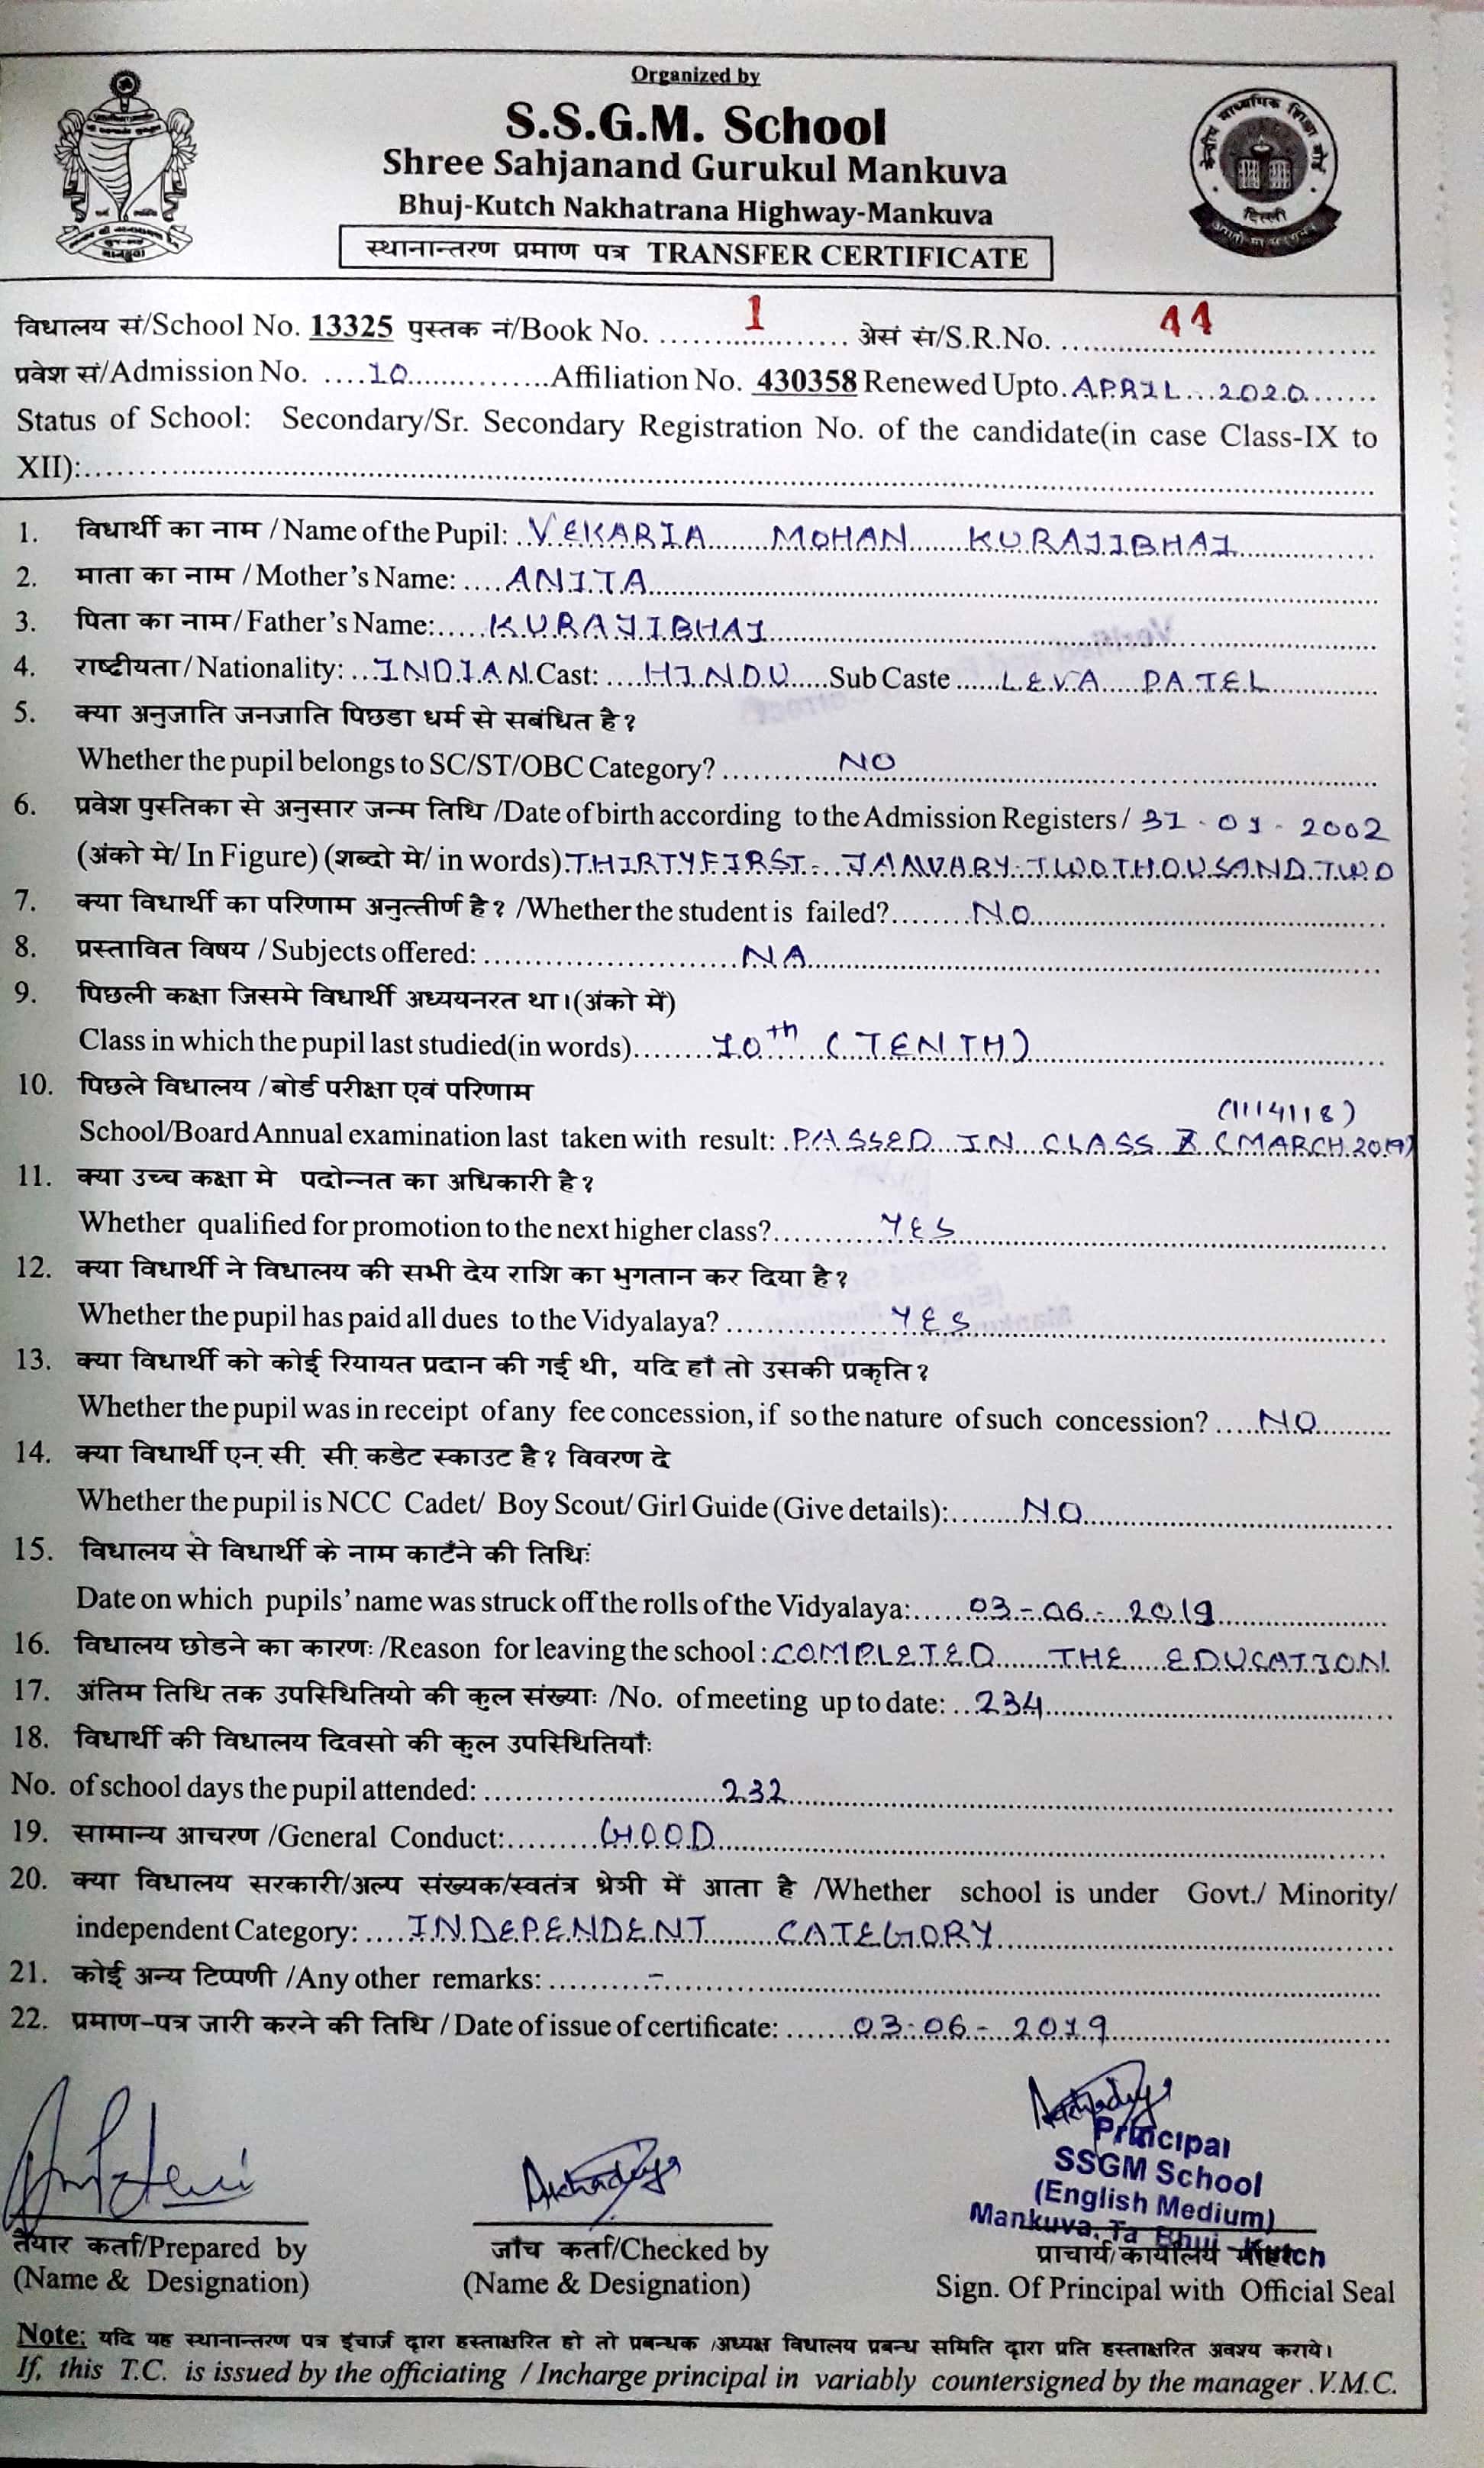 Organized by
S.S.G.M. School
Shree Sahjanand Gurukul Mankuva
Bhuj-Kutch Nakhatrana Highway-Mankuva
स्थानान्तरण प्रमाण पत्र TRANSFER CERTIFICATE
केन्द्रीय माध्यमिक शिक्षा बोर्ड
दिल्ली
विधालय सं/School No. 13325 पुस्तक नं/Book No. 1 अेसं सं/S.R.No. 11
प्रवेश सं/Admission No. ....10...............Affiliation No. 430358 Renewed Upto. APRIL...2020.......
Status of School: Secondary/Sr. Secondary Registration No. of the candidate(in case Class-IX to
XII):
1. विधार्थी का नाम /Name of the Pupil: VEKARIA MOHAN KURAJIBHAI
2. माता का नाम /Mother's Name: ANITA
3. पिता का नाम/Father's Name: KURAJIBHAI
4. राष्टीयता/Nationality: INDIAN Cast: HINDU Sub Caste LEVA PATEL
5. क्या अनुजाति जनजाति पिछडा धर्म से सबंधित है?
Whether the pupil belongs to SC/ST/OBC Category? NO
6. प्रवेश पुस्तिका से अनुसार जन्म तिथि /Date of birth according to the Admission Registers/ 31-01-2002
(अंको मे/ In Figure) (शब्दो मे/ in words) THIRTYFIRST- JANUARY-TWOTHOUSAND TWO
7. क्या विधार्थी का परिणाम अनुत्तीर्ण है? /Whether the student is failed? NO
8. प्रस्तावित विषय /Subjects offered: NA
9. पिछली कक्षा जिसमे विधार्थी अध्ययनरत था।(अंको में)
Class in which the pupil last studied(in words) 10th (TENTH)
10. पिछले विधालय /बोर्ड परीक्षा एवं परिणाम
(1114118)
School/Board Annual examination last taken with result: PASSED IN CLASS X (MARCH.2019)
11. क्या उच्च कक्षा मे पदोन्नत का अधिकारी है?
Whether qualified for promotion to the next higher class? YES
12. क्या विधार्थी ने विधालय की सभी देय राशि का भुगतान कर दिया है?
Whether the pupil has paid all dues to the Vidyalaya? YES
13. क्या विधार्थी को कोई रियायत प्रदान की गई थी, यदि हाँ तो उसकी प्रकृति?
Whether the pupil was in receipt of any fee concession, if so the nature of such concession? NO
14. क्या विधार्थी एन. सी. सी. कडेट स्काउट है? विवरण दे
Whether the pupil is NCC Cadet/ Boy Scout/ Girl Guide (Give details): NO
15. विधालय से विधार्थी के नाम काटँने की तिथिः
Date on which pupils' name was struck off the rolls of the Vidyalaya: 03-06-2019
16. विधालय छोडने का कारणः /Reason for leaving the school: COMPLETED THE EDUCATION
17. अंतिम तिथि तक उपस्थितियो की कुल संख्याः /No. of meeting up to date: 234
18. विधार्थी की विधालय दिवसो की कुल उपस्थितियाँः
No. of school days the pupil attended: 232
19. सामान्य आचरण /General Conduct: GOOD
20. क्या विधालय सरकारी/अल्प संख्यक/स्वतंत्र श्रेञी में आता है /Whether school is under Govt./ Minority/
independent Category: INDEPENDENT CATEGORY
21. कोई अन्य टिप्पणी /Any other remarks: -
22. प्रमाण-पत्र जारी करने की तिथि / Date of issue of certificate: 03-06-2019
Principal
SSGM School
(English Medium)
Mankuva, Ta Bhuj - Kutch
तैयार कर्ता/Prepared by जाँच कर्ता/Checked by प्राचार्य/कार्यालय मोहर
(Name & Designation) (Name & Designation) Sign. Of Principal with Official Seal
Note: यदि यह स्थानान्तरण पत्र इंचार्ज द्वारा हस्ताक्षरित हो तो प्रबन्धक /अध्यक्ष विधालय प्रबन्ध समिति द्वारा प्रति हस्ताक्षरित अवश्य कराये।
If, this T.C. is issued by the officiating / Incharge principal in variably countersigned by the manager .V.M.C.